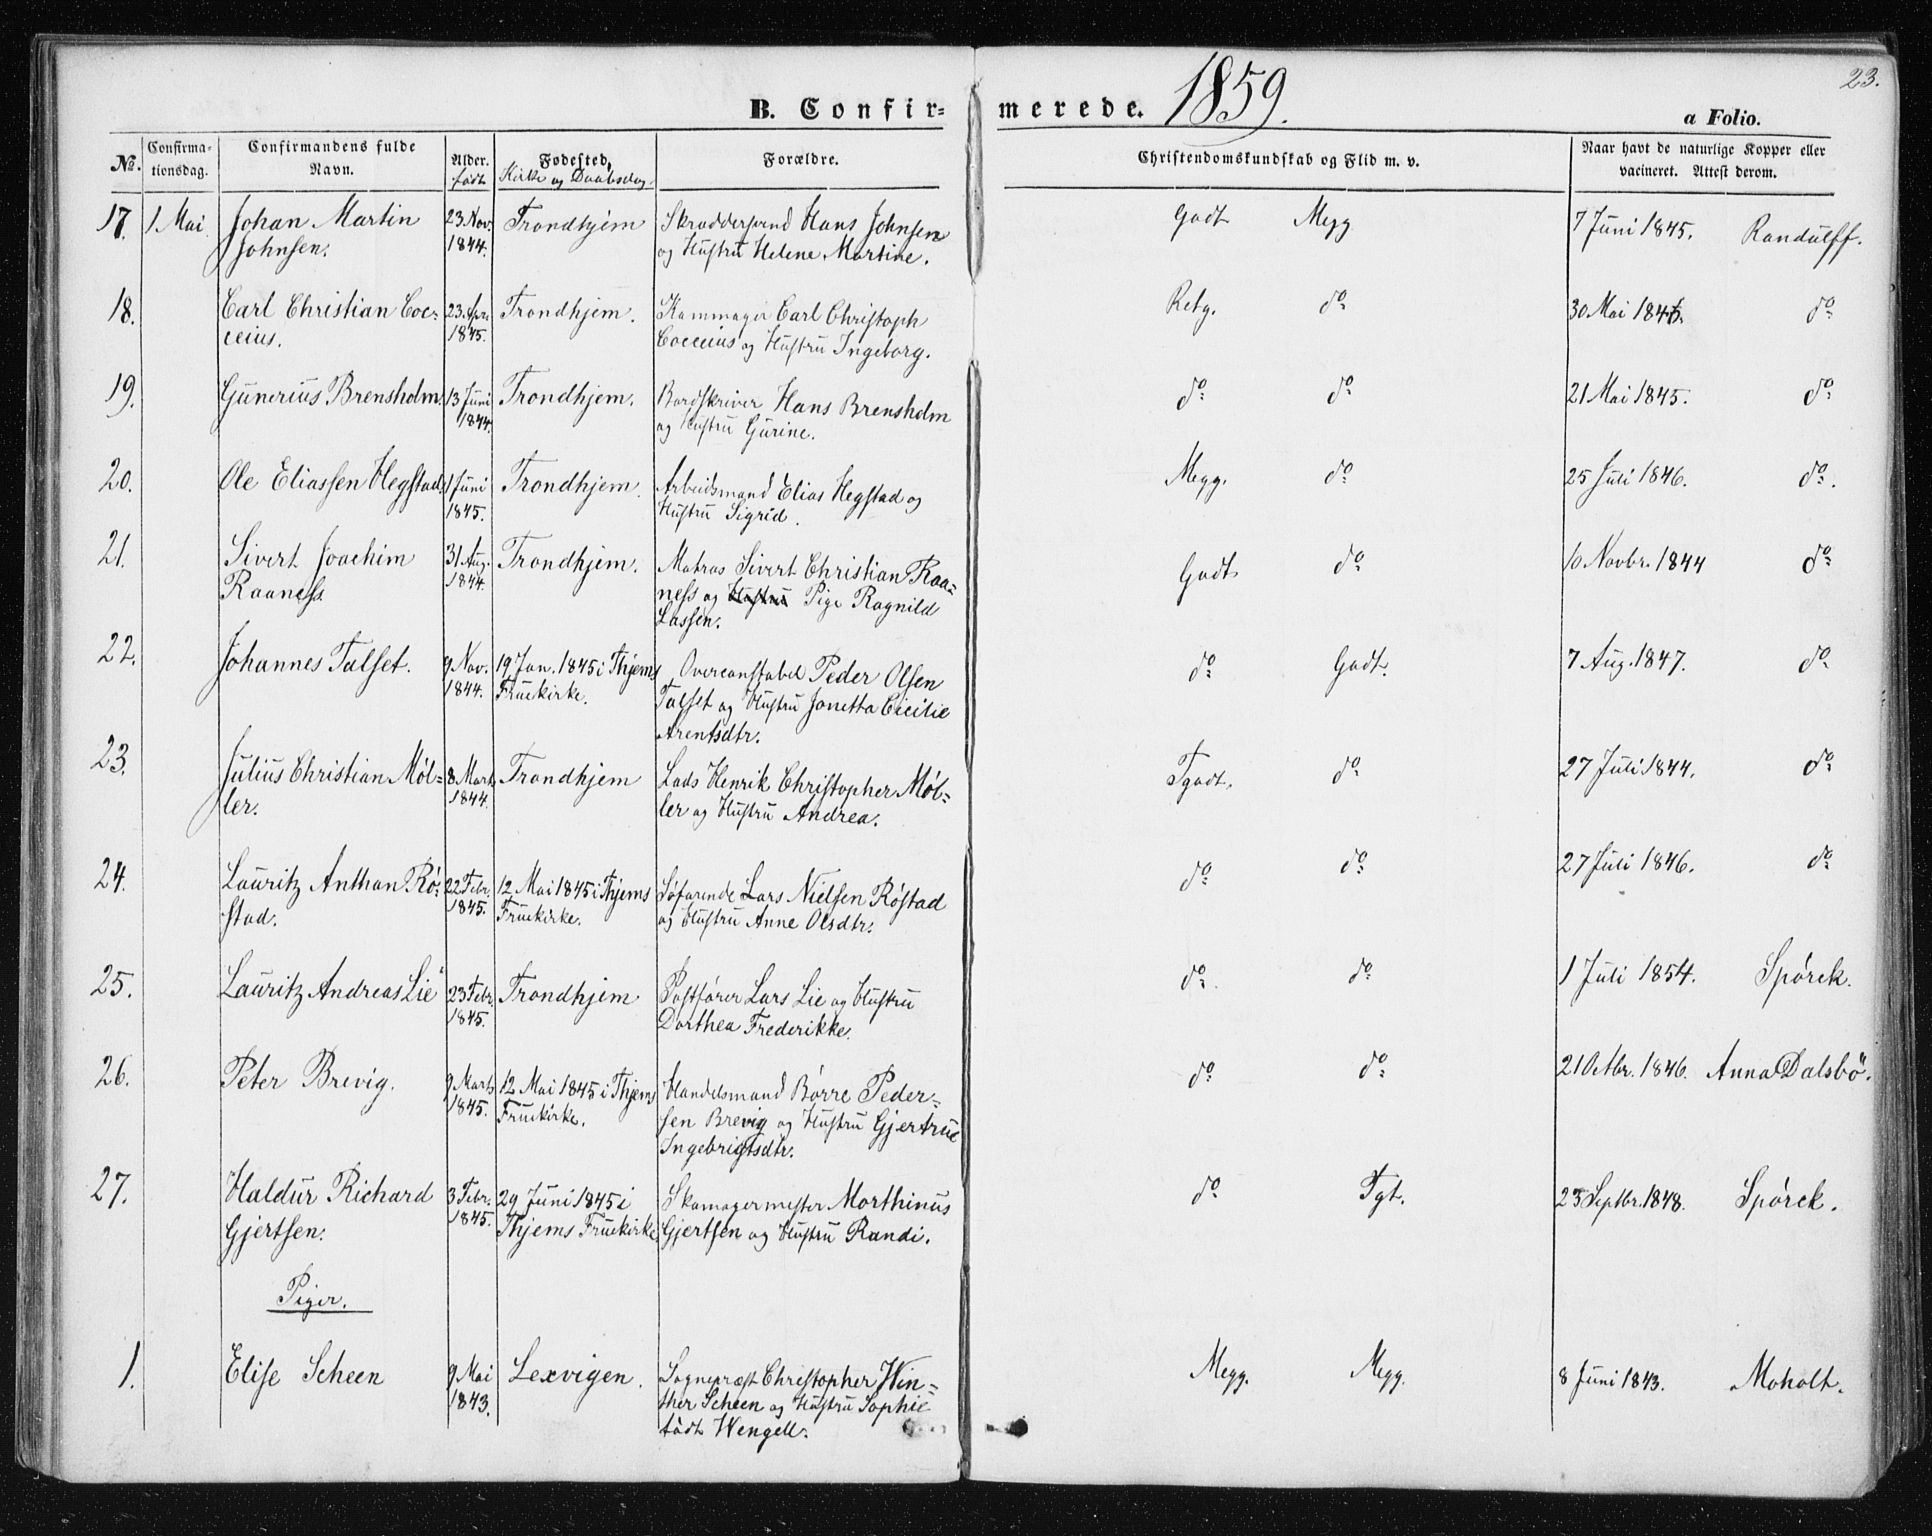 23.
B. Confir= merede. 1859.
a Folio.
No. Confirma-tionsdag. Confirmandens fulde Navn. Alder. født Fødested, Kirke og Daabsdag. Forældre. Christendomskundskab og Flid m. v. Naar havt de naturlige Kopper eller vacineret. Attest derom.
17. 1 Mai. Johan Martin 23 Nov. Trondhjem Skræddersvend Hans Johnsen Godt Megg 7 Juni 1845. Randulff.
Johnsen. 1844. og Hustru Helene Martine.
18. Carl Christian Coc= 23 Apr. Trondhjem. Kammager Carl Christoph Retg. do 30 Mai 1845. do
ceius. 1845. Cocceius og Hustru Ingeborg.
19. Gunerius Brensholm 13 Juni Trondhjem. Bordskriver Hans Brensholm do do 21 Mai 1845. do
1844. og Hustru Gurine.
20. Ole Eliassen Hegstad 1 Juni Trondhjem. Arbeidsmand Elias Hegstad og Megg. do 25 Juli 1846. do.
1845. Hustru Sigrid.
21. Sivert Joachim 31 Aug. Trondhjem. Matros Sivert Christian Raa= Godt do 10 Novbr. 1844 do
Raaness 1844. ness og Hustru Pige Ragnild
Lassen.
22. Johannes Talset. 9 Nov. 19 Jan. 1845 i Thjems Overconstabel Peder Olsen do Godt. 7 Aug. 1847. do
1844. Fruekirke. Talset og Hustru Jonetta Cicilie
Arentsdtr.
23. Julius Christian Møl= 8 Marts Trondhjem Lods Henrik Christopher Møl= Tgodt. do 27 Juli 1844. do
ler. 1844. ler og Hustru Andrea.
24. Lauritz Anthan Rø= 22 Febr. 12 Mai 1845 i Thjems Søfarende Lars Nielsen Røstad do do 27 Juli 1846. do
stad. 1845. Fruekirke. og Hustru Anne Olsdtr.
25. Lauritz Andreas Lie 23 Febr. Trondhjem Postfører Lars Lie og Hustru do. do 1 Juli 1854. Spørck.
1845. Dorthea Frederikke.
26. Peter Brevig. 9 Marts 12 Mai 1845 i Thjems Handelsmand Børre Peder= do do 21 Octbr. 1846. Anna Dalsbö.
1845. Fruekirke. sen Brevig og Hustru Gjertrue
Ingebrigtsdtr.
27. Haldur Richard 3 Febr. 29 Juni 1845 i Skomagermester Morthinus do Tgt. 23 Septbr. 1848. Spørck.
Gjertsen. 1845. Thjems Fruekirke Gjertsen og Hustru Randi.
Piger.
1. Elise Scheen 9 Mai Lexvigen. Sognepræst Christopher Win= Megg. Megg. 8 Juni 1843. Moholt.
1843. ther Scheen og Hustru Sophie
født Wengell.